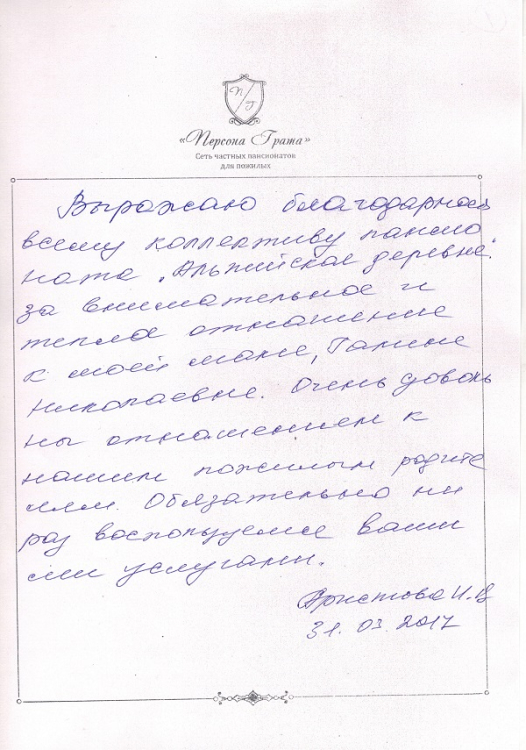 П/Г
«Персона Грата»
Сеть частных пансионатов
для пожилых
Выражаю благодарность
всему коллективу пансио
ната „Альпийская деревня"
за внимательное и
теплое отношение
к моей маме, Галине
Николаевне. Очень доволь
ны отношением к
нашим пожилым родите
лям. Обязательно ни
раз воспользуемся ваши
ми услугами.
Аристова И.В
31.03.2017